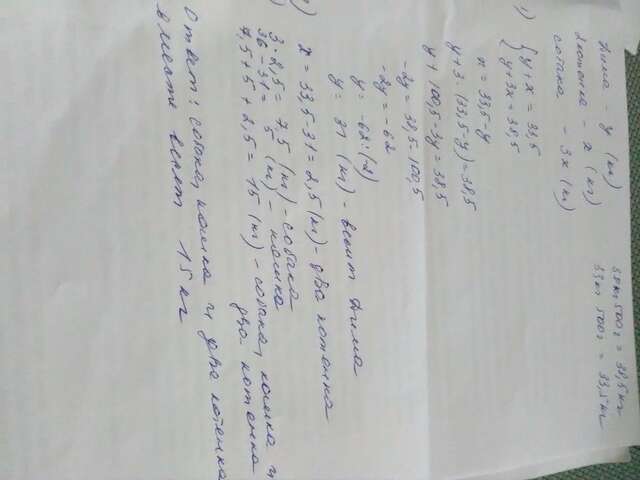 38 кг 500 г = 38,5 кг
33 кг 500 г = 33,5 кг
Дима - y (кг)
2 котенка - x (кг)
собака - 3x (кг)
1) { y+x = 33,5
{ y+3x = 38,5
x = 33,5-y
y+3·(33,5-y) = 38,5
y+100,5-3y = 38,5
-2y = 38,5-100,5
-2y = -62
y = -62:(-2)
y = 31 (кг) - весит Дима
2) x = 33,5-31 = 2,5 (кг) - два котенка
3·2,5 = 7,5 (кг) - собака
36-31 = 5 (кг) - кошка
7,5+5+2,5 = 15 (кг) - собака, кошка и
два котенка
Ответ: собака, кошка и два котенка
вместе весят 15 кг